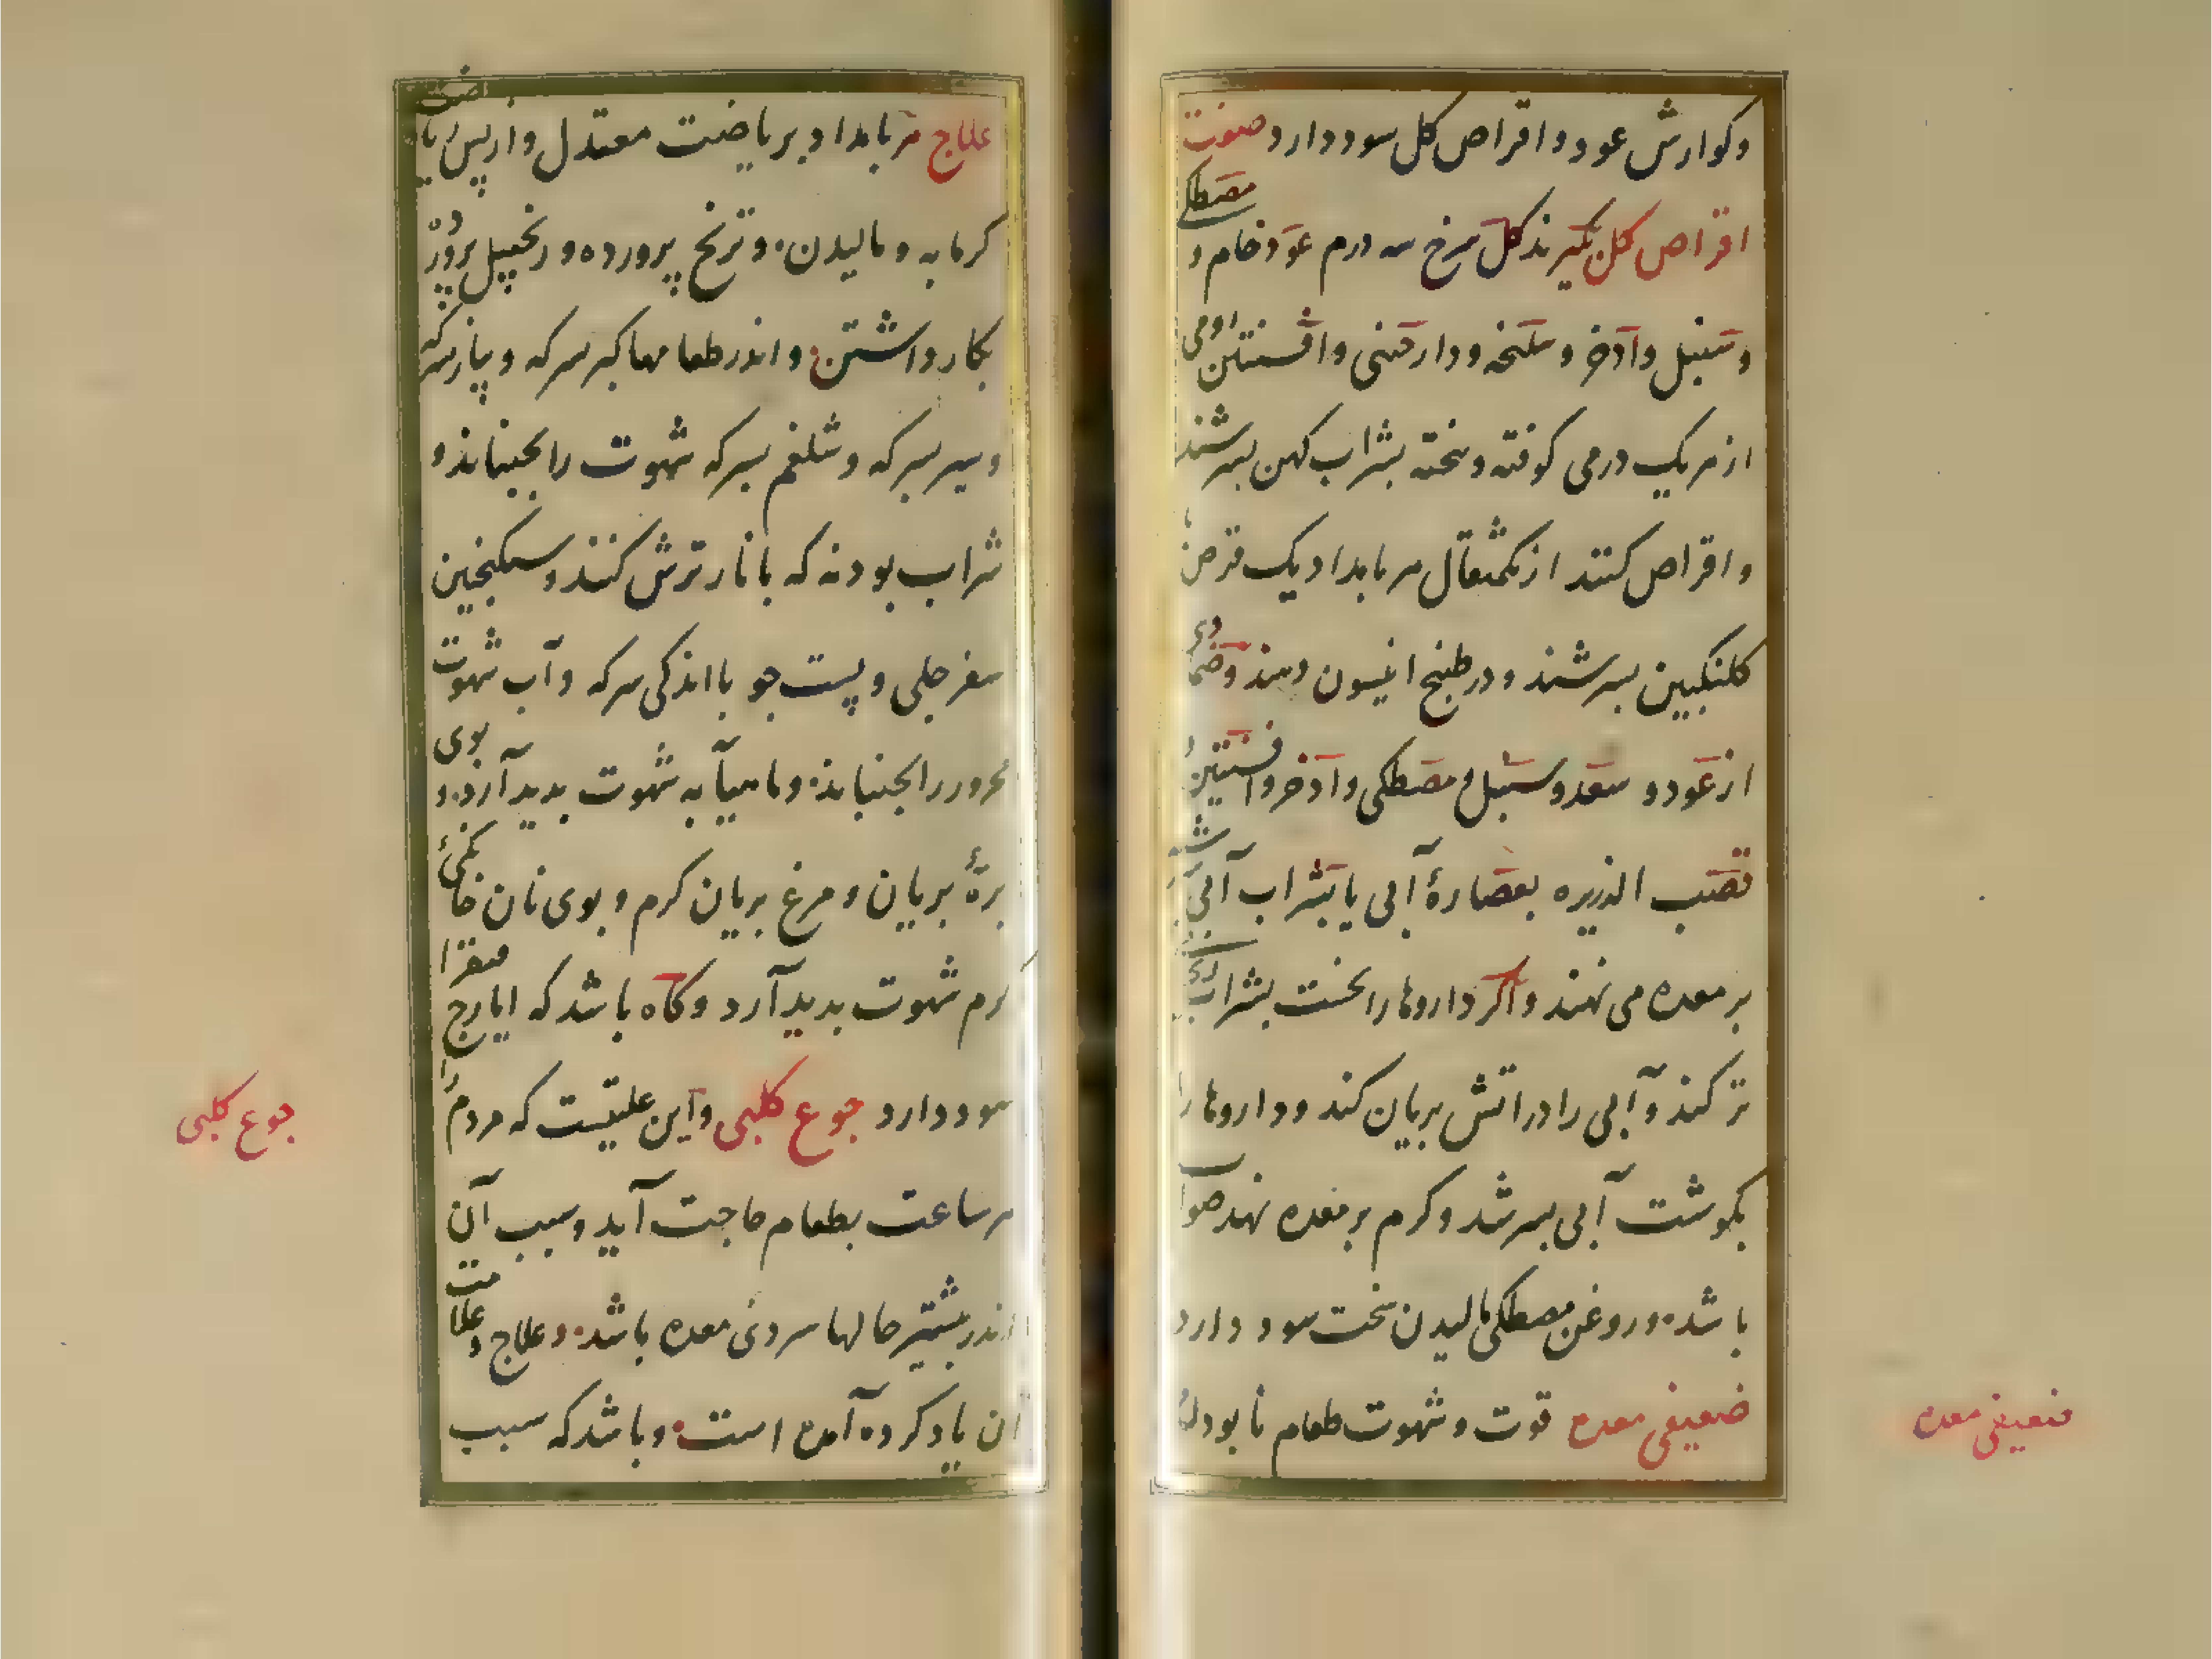 وکوارش عود و اقراص کل سود دارد صفت
اقراص کل بکیرند کل سرخ سه درم عود خام و مصطکی
و سنبل و اذخر و سلیخه و دارچینی و افسنتین رومی
از هر یک درمی کوفته و بیخته بشراب کهن بسرشند
و اقراص کنند از یکمثقال هر بامداد یک قرص با
کلنکبین بسرشند و در طبیخ انیسون دهند و ضمادی
از عود و سعد و سنبل و مصطکی و اذخر و افسنتین و
قصب الذریره بعصارهٔ آبی یا بشراب آبی
بر معده می نهند و اکر داروها را نخست بشراب
تر کند و آبی را در اتش بریان کند و داروها را
بکوشت آبی بسرشد و کرم بر معده نهد صواب
باشد و روغن مصطکی مالیدن سخت سود دارد
ضعیفی معده قوت و شهوت طعام نابودن
ضعیفی معده
علاج هر بامداد بریاضت معتدل و از پس ریاضت
کرمابه و مالیدن و ترنج پرورده و زنجبیل پرورده
بکار داشتن و اندر طعامها کبر سرکه و پیاز سرکه
و سیر بسرکه و شلغم بسرکه شهوت را بجنباند و
شراب بودنه که با نار ترش کنند و سکنجبین
سفرجلی و پست جو با اندکی سرکه و آب شهوت
محرور را بجنباند و ماهیآبه شهوت بدید آرد و بوی
برهٔ بریان و مرغ بریان کرم و بوی نان خانکی
کرم شهوت بدید آرد و کاه باشد که ایارج فیقرا
سود دارد جوع کلبی و این علتیست که مردم را
هر ساعت بطعام حاجت آید و سبب آن
اندر بیشتر حالها سردی معده باشد و علاج و علامت
آن یاد کرده آمده است و باشد که سبب
جوع کلبی